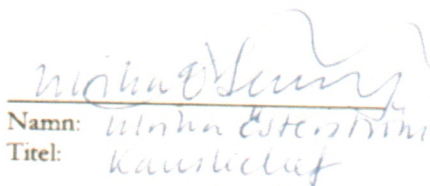 Namn: Ulrika Österström
Titel: Kanslichef